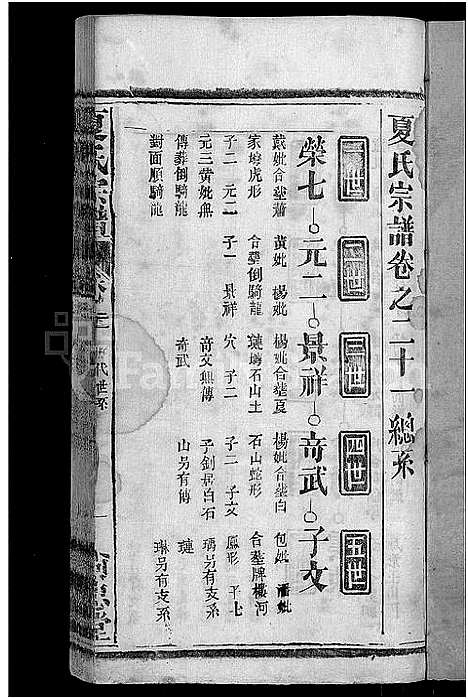 夏氏宗譜卷之二十一總系
一世 二世 三世 四世 五世
榮七 元二 景祥 奇武 子文
戴妣合塟蕭
家塝虎形
子二 元二
元三黄妣無
傳葬倒騎龍
對面順騎龍
黄妣 楊妣
合塟倒騎龍
子一 景祥
楊妣合塟夏
璉塆石山土
穴 子二
奇文無傳
奇武
楊妣合塟白
石山蛇形
子二 子文
子釗居白石
山另有傳
包妣 潘妣
合塟牌樓河
鳳形 子七
瑀另有支系
璉
琳另有支系
夏氏宗譜
五代世系